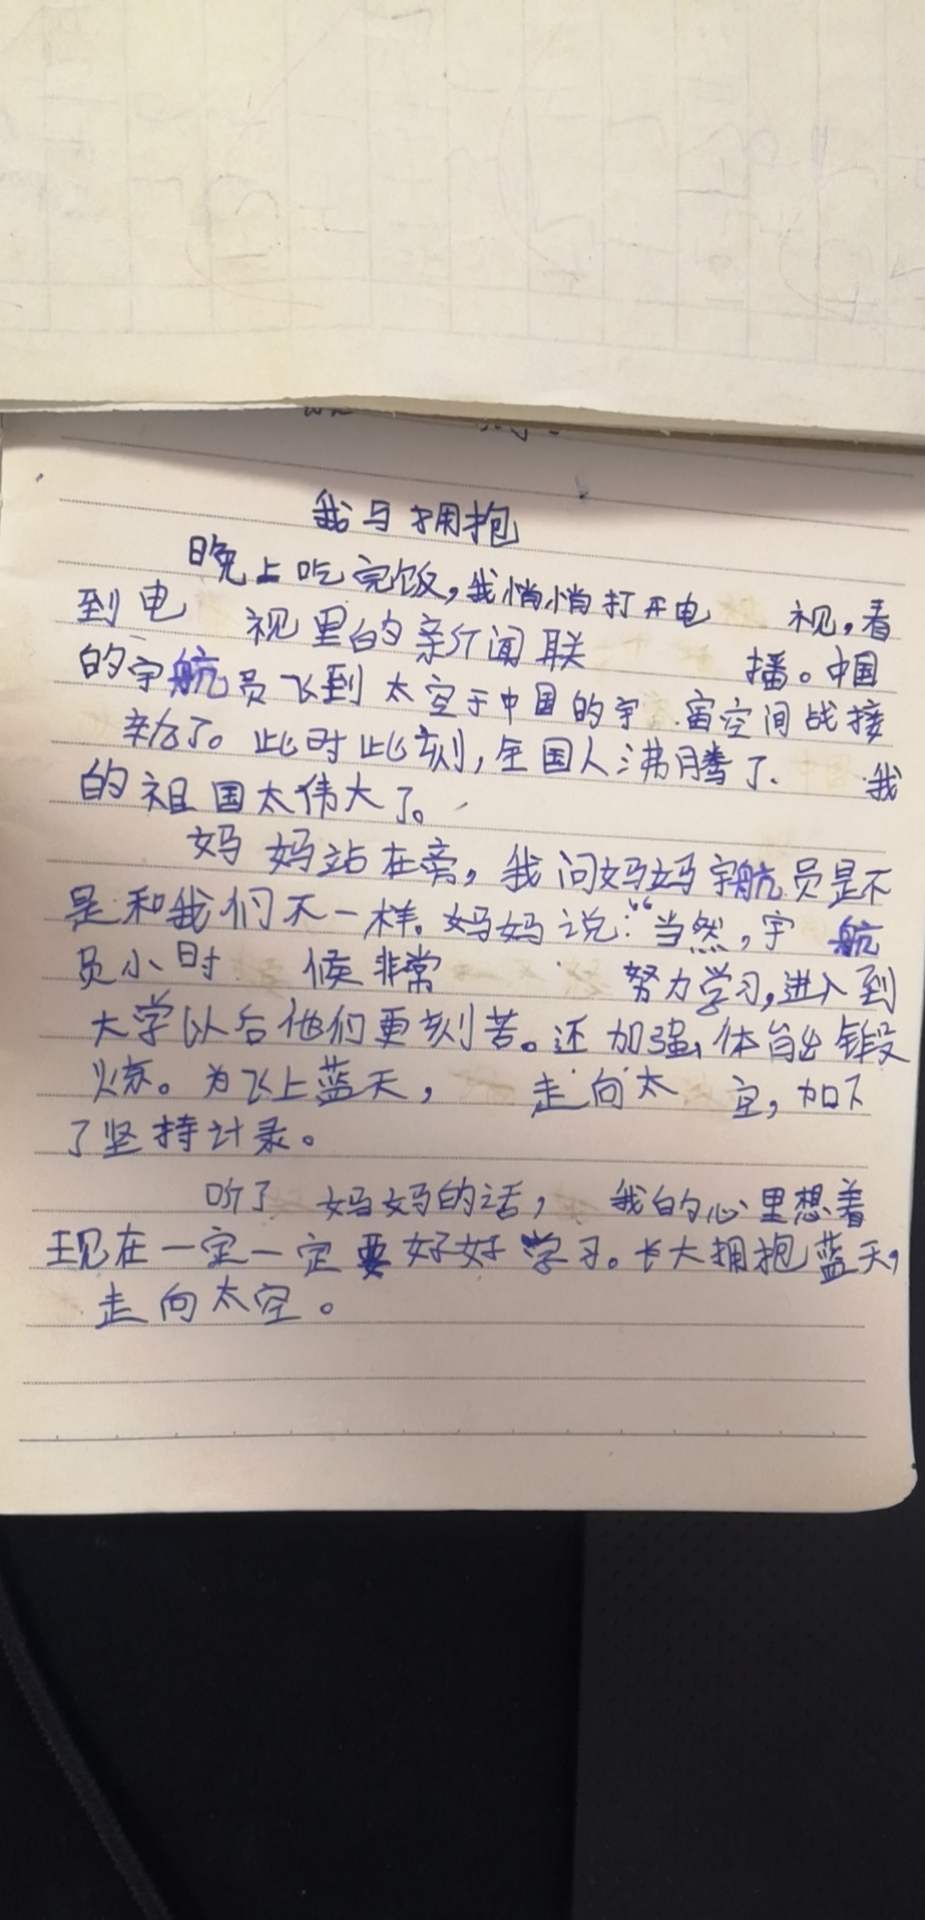 我与拥抱
晚上吃完饭,我悄悄打开电 视,看
到电 视里的新闻联 播。中国
的宇航员飞到太空于中国的宇 宙空间战接
了。此时此刻,全国人沸腾了. 我
的祖国太伟大了。
妈妈站在旁,我问妈妈宇航员是不
是和我们不一样。妈妈说:“当然,宇 航
员小时 候非常 努力学习,进入到
大学以后他们更刻苦。还加强体 锻
炼。为飞上蓝天, 走向太 空,加下
了坚持计录。
听了 妈妈的话, 我的心里想着
现在一定一定要好好学习。长大拥抱蓝天,
走向太空。